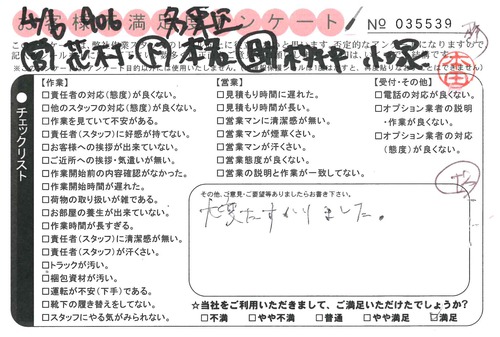 お客様満足度アンケート
No 035539
4/6 A06 名東区
【作業】
□責任者の対応(態度)が良くない。
□他のスタッフの対応(態度)が良くない。
□作業を見ていて不安がある。
□責任者(スタッフ)に好感が持てない。
□お客様への挨拶が出来ていない。
□ご近所への挨拶・気遣いが無い。
□作業開始前の内容確認がなかった。
□作業開始時間が遅れた。
□荷物の取り扱いが雑である。
□お部屋の養生が出来ていない。
□作業時間が長すぎる。
□責任者(スタッフ)に清潔感が無い。
□責任者(スタッフ)が汗くさい。
□トラックが汚い。
□梱包資材が汚い。
□運転が不安(下手)である。
□靴下の履き替えをしてない。
□スタッフにやる気がみられない。
【営業】
□見積もり時間に遅れた。
□見積もり時間が長い。
□営業マンに清潔感が無い。
□営業マンが煙草くさい。
□営業マンが汗くさい。
□営業態度が良くない。
□営業の説明と作業が一致してない。
【受付・その他】
□電話の対応が良くない。
□オプション業者の説明
・作業が良くない。
□オプション業者の対応
(態度)が良くない。
●チェックリスト
その他、ご意見・ご要望等ありましたらお書き下さい。
大変たすかりました。
☆当社をご利用いただきまして、ご満足いただけたでしょうか?
□不満 □やや不満 □普通 □やや満足 □満足